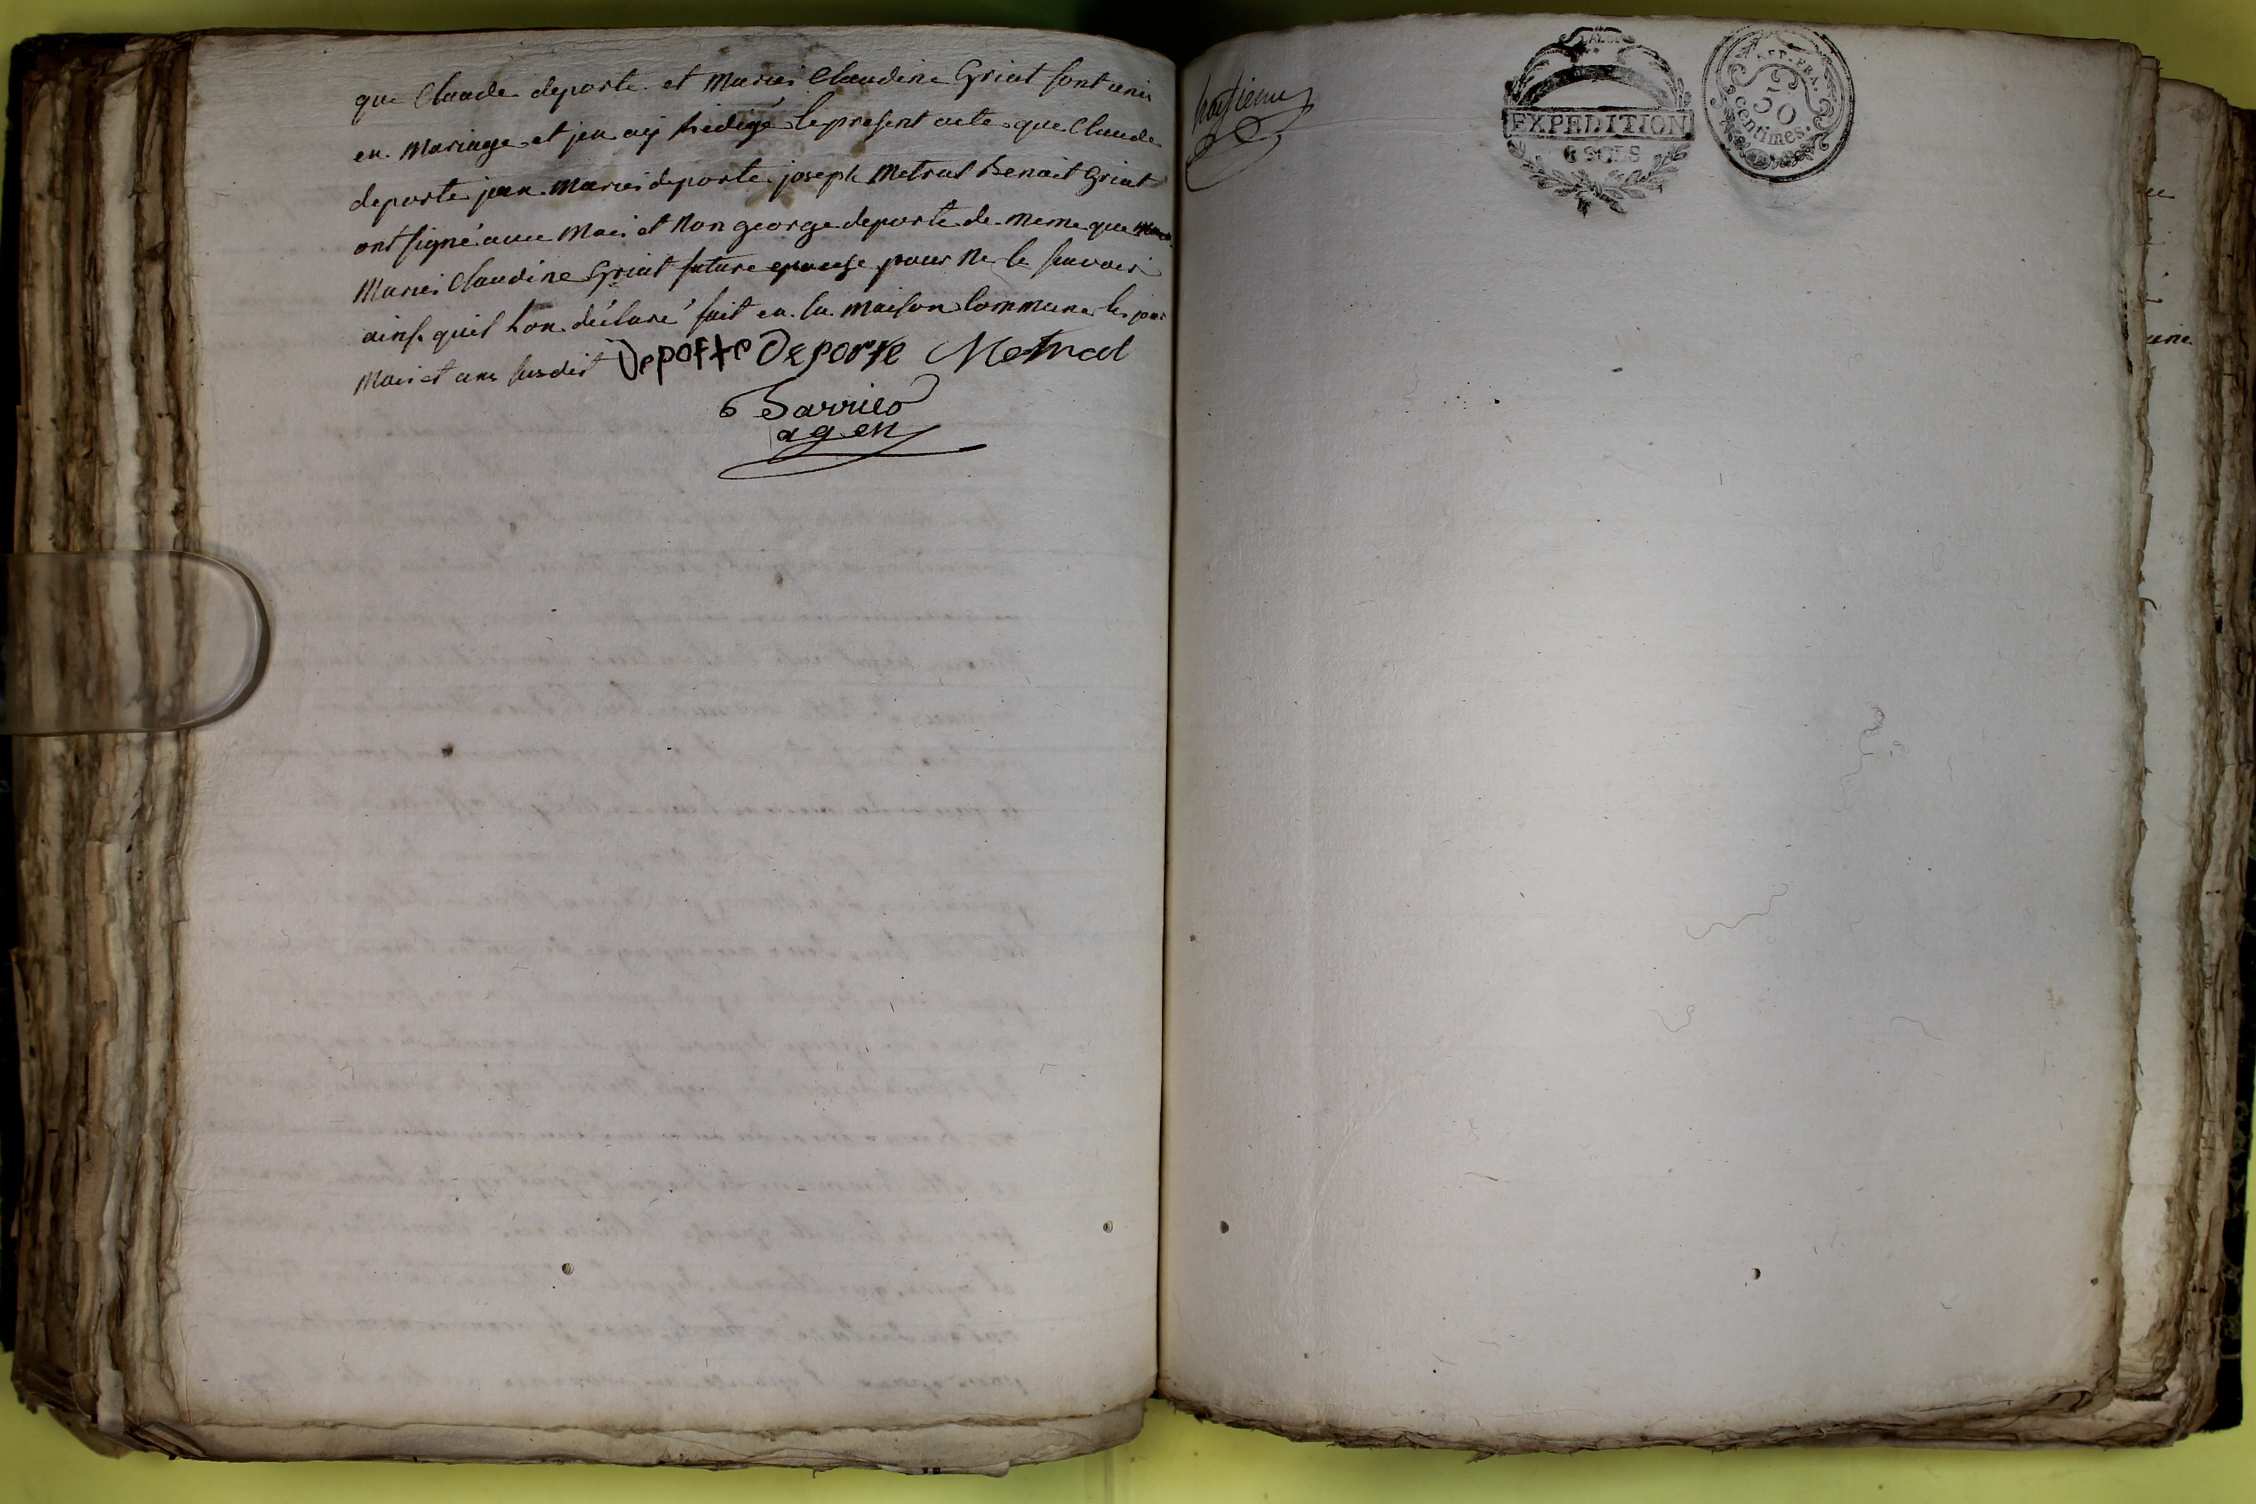 que Claude deporte et Marie Claudine Griat sont unis
en Mariage et jen aij Redigé le present acte que Claude
deporte jean Marie deporte joseph Metrat Benoit Griat
ont signé avec Moi et Non george deporte de Meme que
Marie Claudine Griat future epouse pour Ne le savoir
ainsi quil lon déclaré fait en la Maison Commune les jour
Mois et ans susdit Deporte Deporte Metrat
Barrié
agen
EXPEDITION
6 SOLS
REP. FRA.
50
centimes.